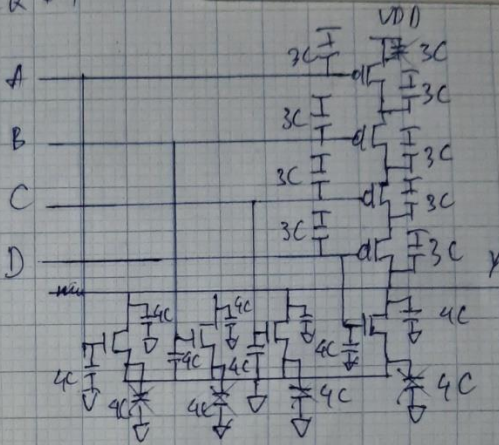 VDD
3C
3C
A
3C
3C
B
3C
3C
C
3C
3C
D
3C
Y
4C
4C
4C
4C
4C
4C
4C
4C
4C
4C
4C